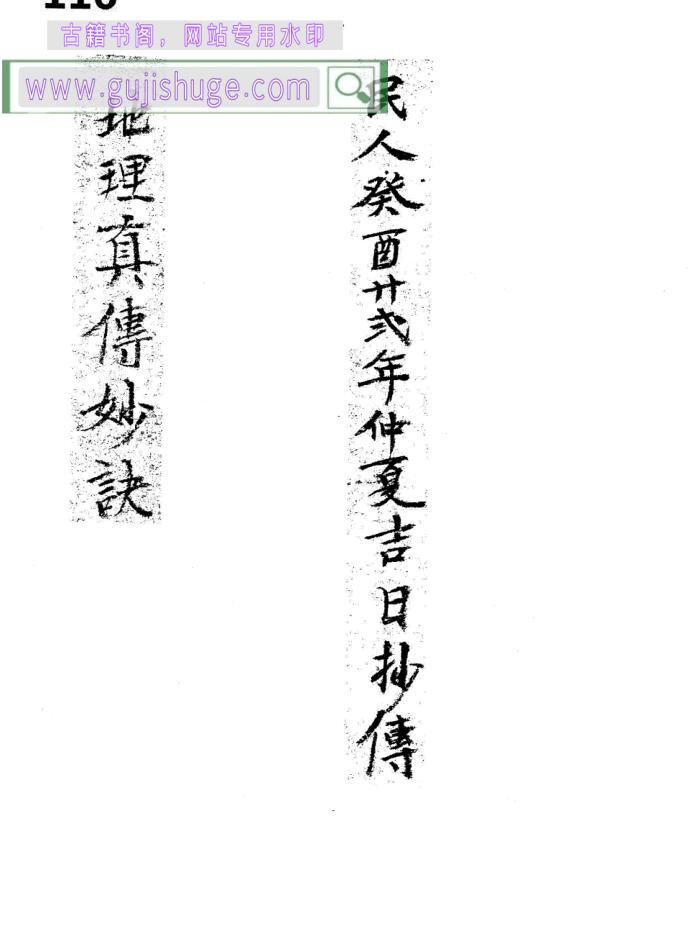 110
古籍书阁，网站专用水印
www.gujishuge.com
民人癸酉廿弍年仲夏吉日抄傳
地理真傳妙訣